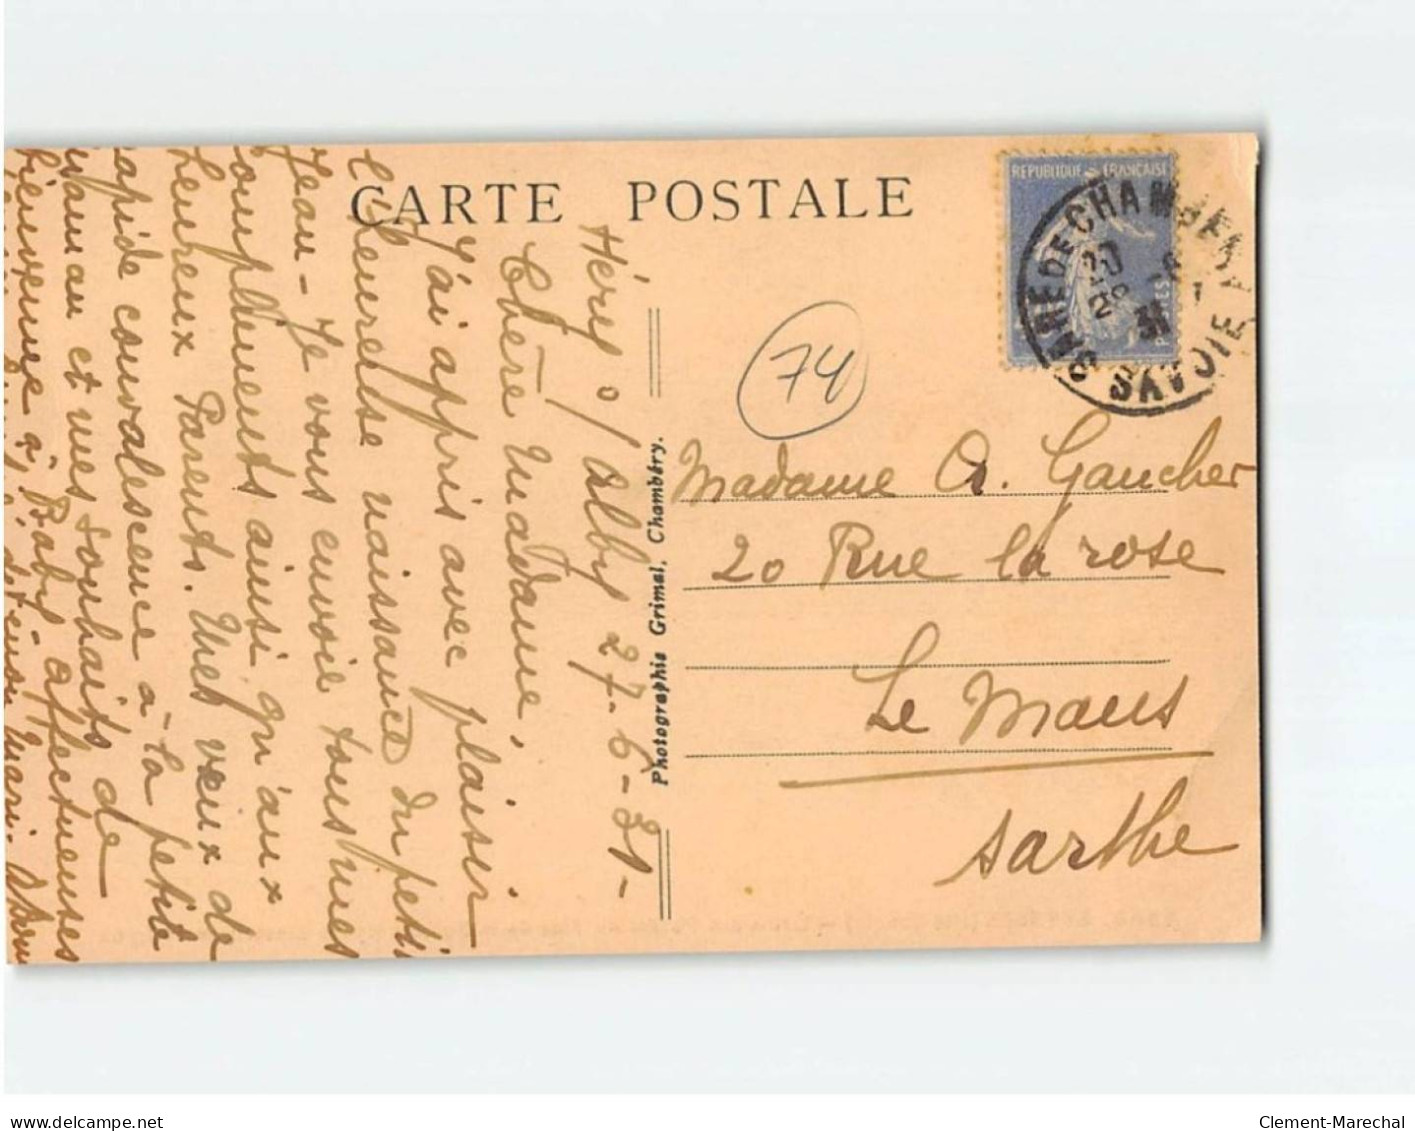 CARTE POSTALE
REPUBLIQUE FRANÇAISE
POSTES
GARE DE CHAMBERY
SAVOIE
20
28 -6
31
74
Héry s/ Alby 27-6-31-
Chère Madame,
J'ai appris avec plaisir
l'heureuse naissance du petit
Jean - Je vous envoie tous mes
compliments ainsi qu'aux
heureux Parents. Mes vœux de
rapide convalescence à la petite
maman et mes souhaits de
bienvenue à Baby - affectueuses
Photographie Grimal, Chambéry.
Madame A. Gaucher
20 Rue la rose
Le Mans
Sarthe
Clement-Marechal